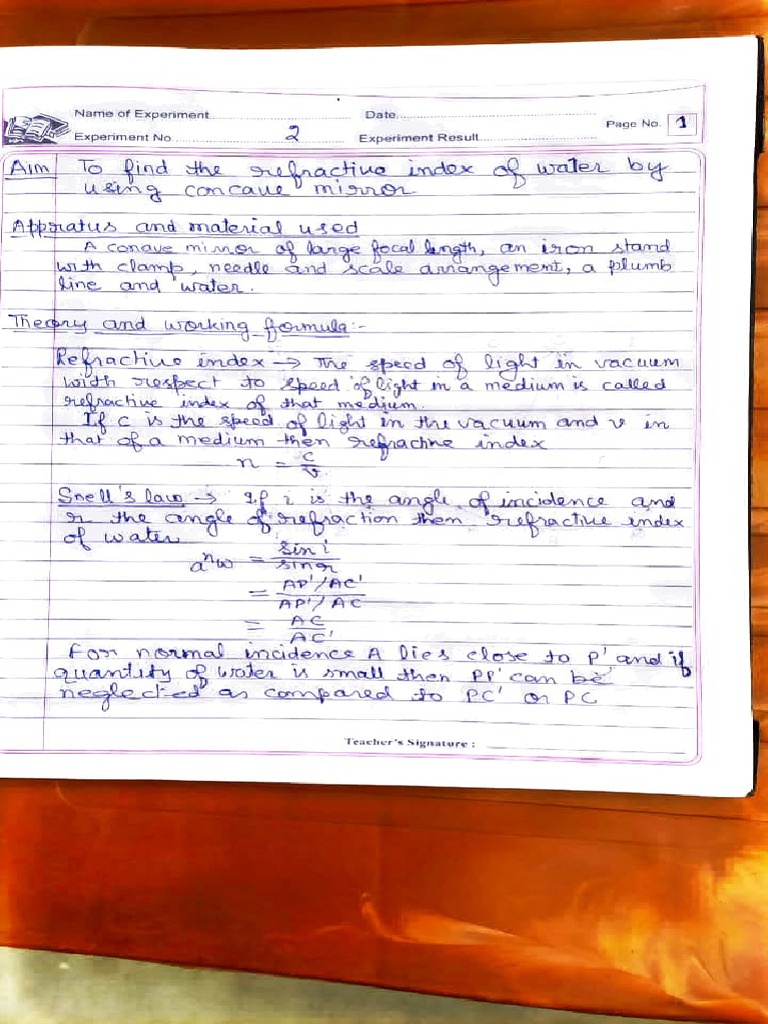 Name of Experiment Date
Experiment No. 2 Experiment Result Page No. 1
Aim To find the refractive index of water by
using concave mirror
Apparatus and material used
A conave mirror of large focal length, an iron stand
with clamp, needle and scale arrangement, a plumb
line and water.
Theory and working formula:-
Refractive index → The speed of light in vacuum
with respect to speed of light in a medium is called
refractive index of that medium.
If c is the speed of light in the vacuum and v in
that of a medium then refractive index
n = c/v
Snell's law → If i is the angle of incidence and
r the angle of refraction then refractive index
of water
aⁿw = sin i / sin r
= AP'/AC' / AP'/AC
= AC / AC'
For normal incidence A lies close to P' and if
quantity of water is small then PP' can be
neglected as compared to PC' or PC
Teacher's Signature :